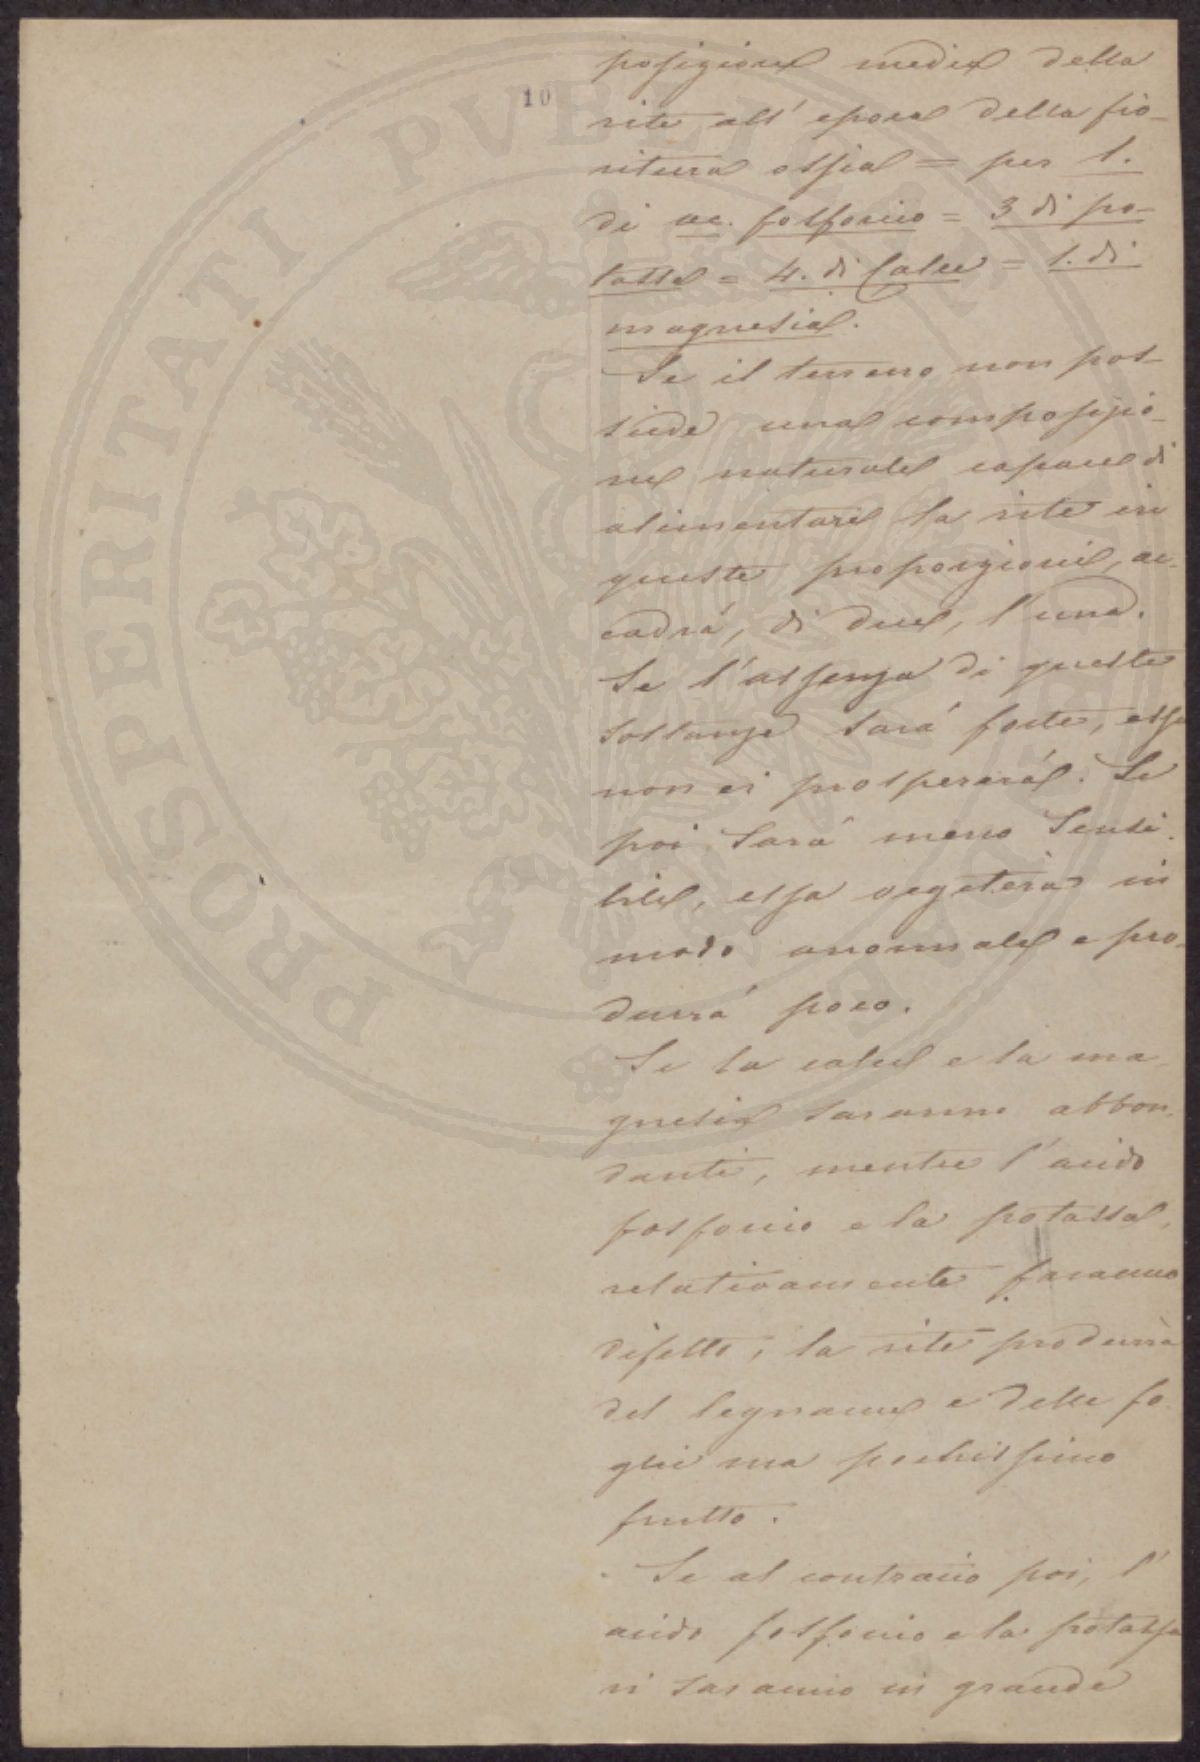 10
posizione media della
vite all' epoca della fio-
ritura ossia = per 1.
di ac. fosforico = 3 di po-
tassa = 4. di Calce = 1. di
magnesia.
Se il terreno non pos-
siede una composizio-
ne naturale capace di
alimentare la vite in
queste proporzioni, ac-
cadrà, di due, l'una.
Se l'assenza di queste
sostanze sarà forte, essa
non vi prospererà. Se
poi sarà meno sensi-
bile, essa vegeterà in
modo anormale e pro-
durrà poco.
Se la calce e la ma-
gnesia saranno abbon-
danti, mentre l'acido
fosforico e la potassa,
relativamente faranno
difetto, la vite produrrà
del legname e delle fo-
glie ma pochissimo
frutto.
Se al contrario poi, l'
acido fosforico e la potassa
vi saranno in grande
PROSPERITATI PVBLICAE